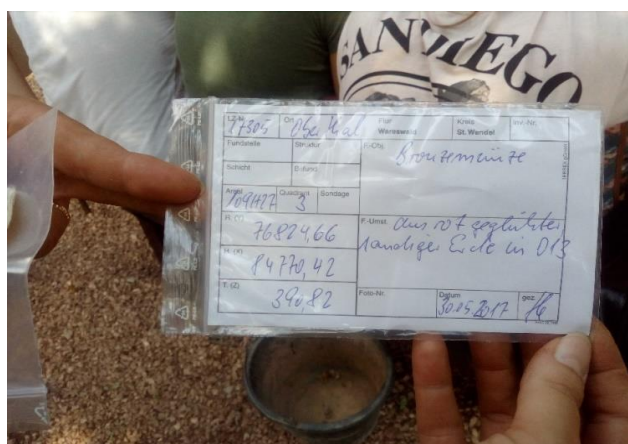 SAN DIEGO
LZ-Nr. 17305 Ort Oberthal Flur Wareswald Kreis St. Wendel Inv.-Nr.
Fundstelle Struktur F.-Obj. Bronzemünze
Schicht Befund
Areal 109/127 Quadrant 3 Sondage
R. (Y) 76824,66 F.-Umst. aus rot geglühter
sandiger Erde in D13
H. (X) 84770,42
T. (Z) 390,82 Foto-Nr. Datum 30.05.2017 gez.